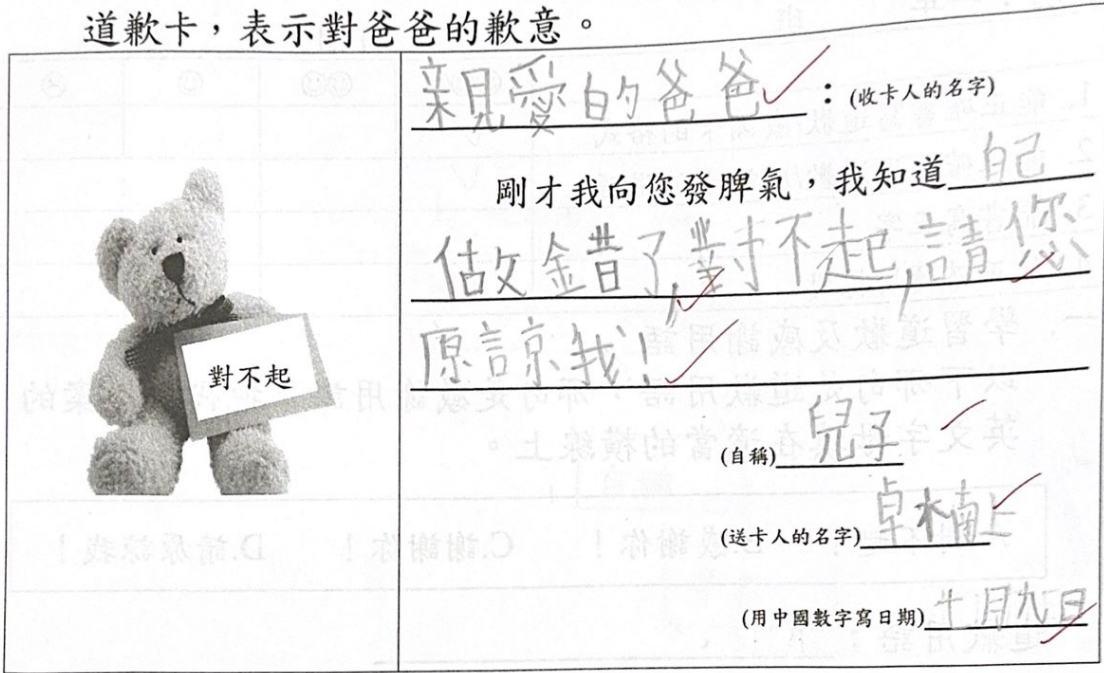 道歉卡，表示對爸爸的歉意。
親愛的爸爸：(收卡人的名字)
剛才我向您發脾氣，我知道自己
做錯了,對不起,請您
原諒我!
對不起
(自稱)兒子
(送卡人的名字)卓楠上
(用中國數字寫日期)十月九日